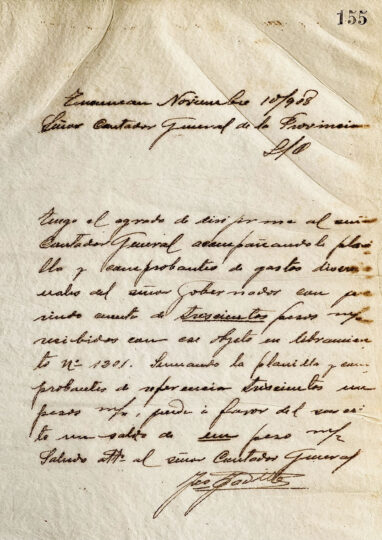 155
Tucuman Noviembre 10/908
Señor Contador General de la Provincia
S/D
Tengo el agrado de dirijirme al señor
Contador General acompañando la plani
lla y comprobantes de gastos
del señor Gobernador con
cuenta de trescientos pesos m/n
recibidos con ese objeto en libramien
to No 1201. Sumando la planilla y com
probantes de referencia trescientos un
pesos m/n, queda á favor del
to un saldo de un peso m/n
Saludo atte al señor Contador General